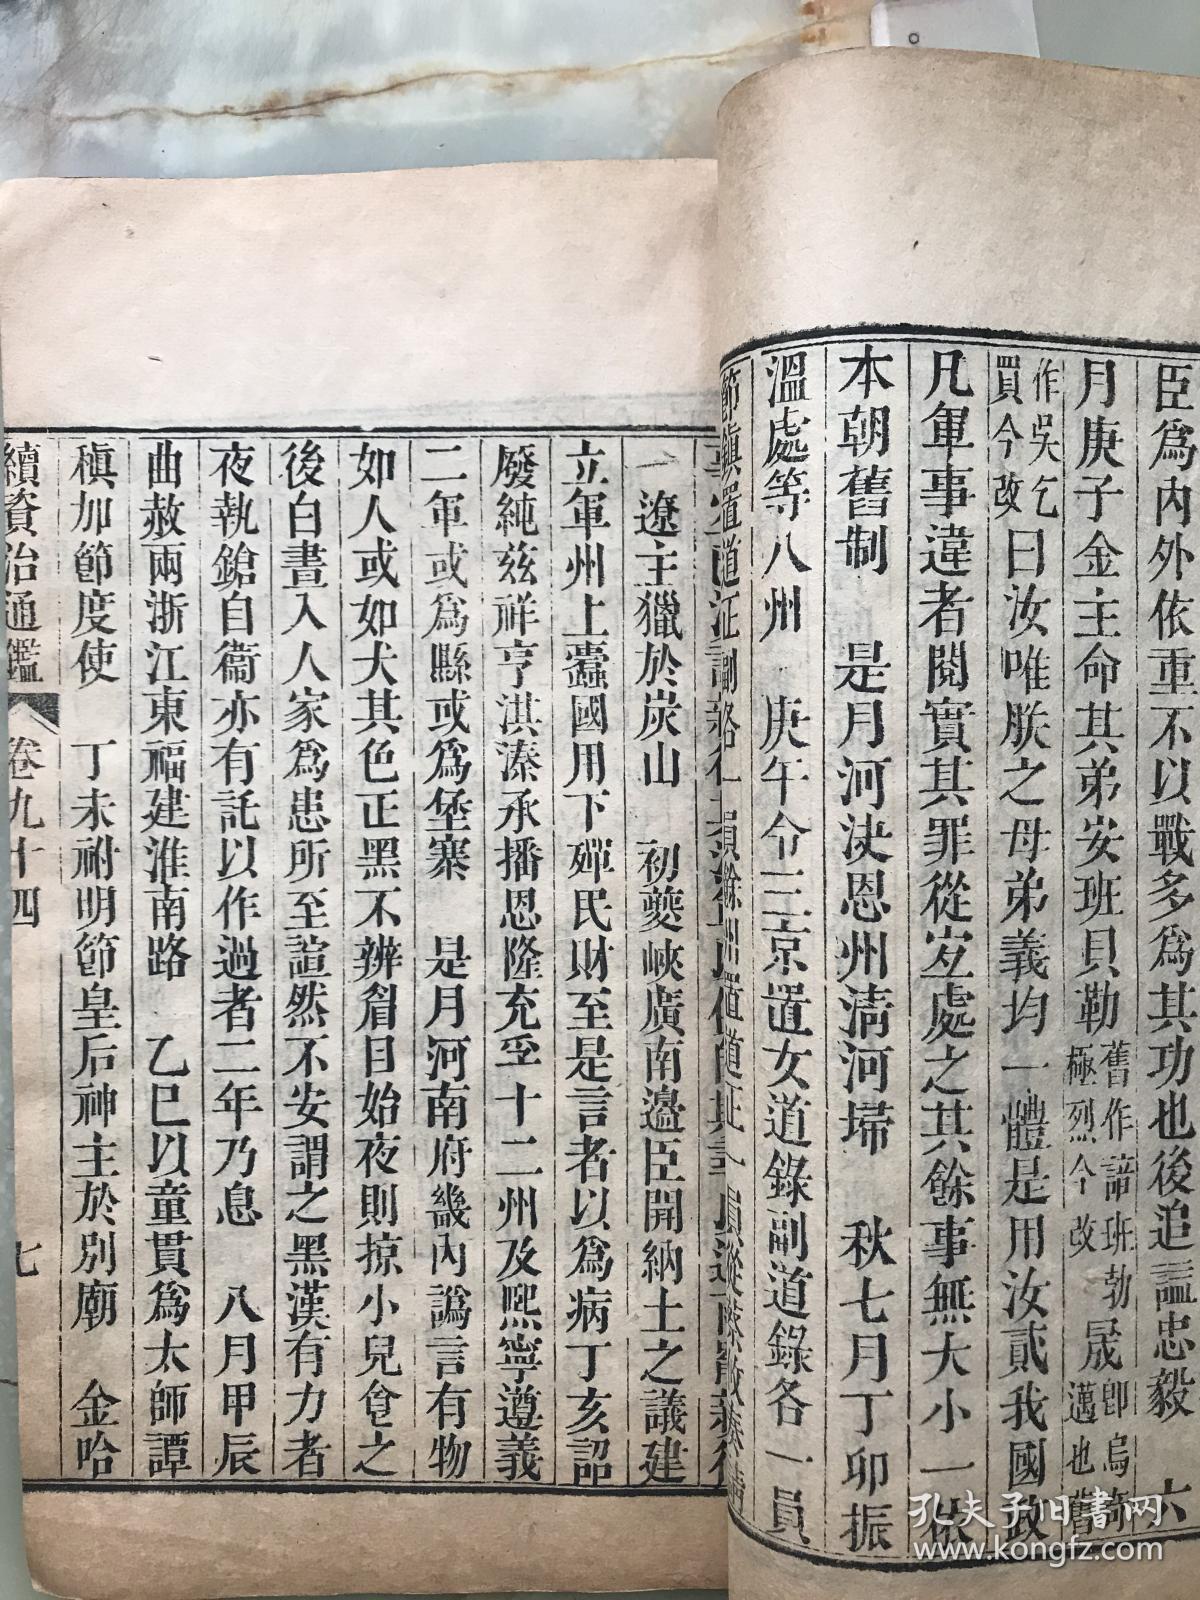 臣爲內外依重不以戰多爲其功也後追諡忠毅　六
月庚子金主命其弟安班貝勒舊作諳班勃極烈今改晟卽烏奇邁也舊
作吳乞買今改曰汝唯朕之母弟義均一體是用汝貳我國政
凡軍事違者閱實其罪從宐處之其餘事無大小一依
本朝舊制　是月河決恩州淸河埽　秋七月丁卯振
溫處等八州　庚午令三京置女道錄副道錄各一員
節鎭置道正副各一員餘州置道正一員
遼主獵於炭山　初夔峽廣南邊臣開納土之議建
立軍州上蠹國用下殫民財至是言者以爲病丁亥詔
廢純茲祥亨淇溱承播恩隆充孚十二州及熙寧遵義
二軍或爲縣或爲堡寨　是月河南府畿內譌言有物
如人或如犬其色正黑不辨眉目始夜則掠小兒食之
後白晝入人家爲患所至諠然不安謂之黑漢有力者
夜執鎗自衞亦有託以作過者二年乃息　八月甲辰
曲赦兩浙江東福建淮南路　乙巳以童貫爲太師譚
稹加節度使　丁未祔明節皇后神主於別廟　金哈
續資治通鑑　卷九十四　七
孔夫子旧书网
www.kongfz.com